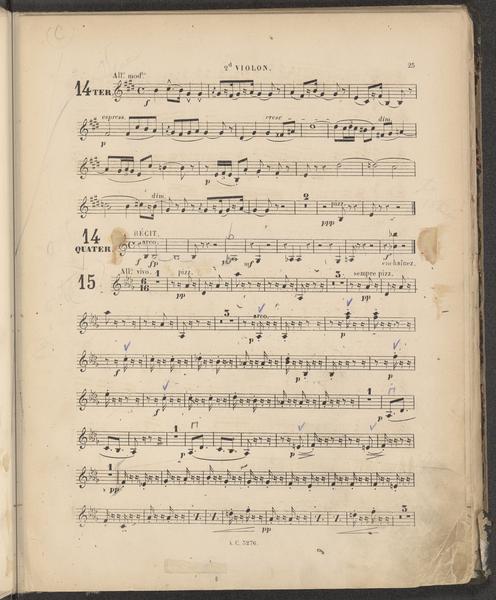 2d VIOLON. 25
14 TER All.o mod.to
f
express. cresc dim.
p
p
dim. 2 pizz.
ppp
14 QUATER RÉCIT.
arco.
f fp p mf enchaînez.
15 All.o vivo. 1 pizz. 3 sempre pizz.
6 16 pp pp
3 arco.
p p
f p
1
f p
1
p p
1
pp
3
pp p
A. C. 5276.